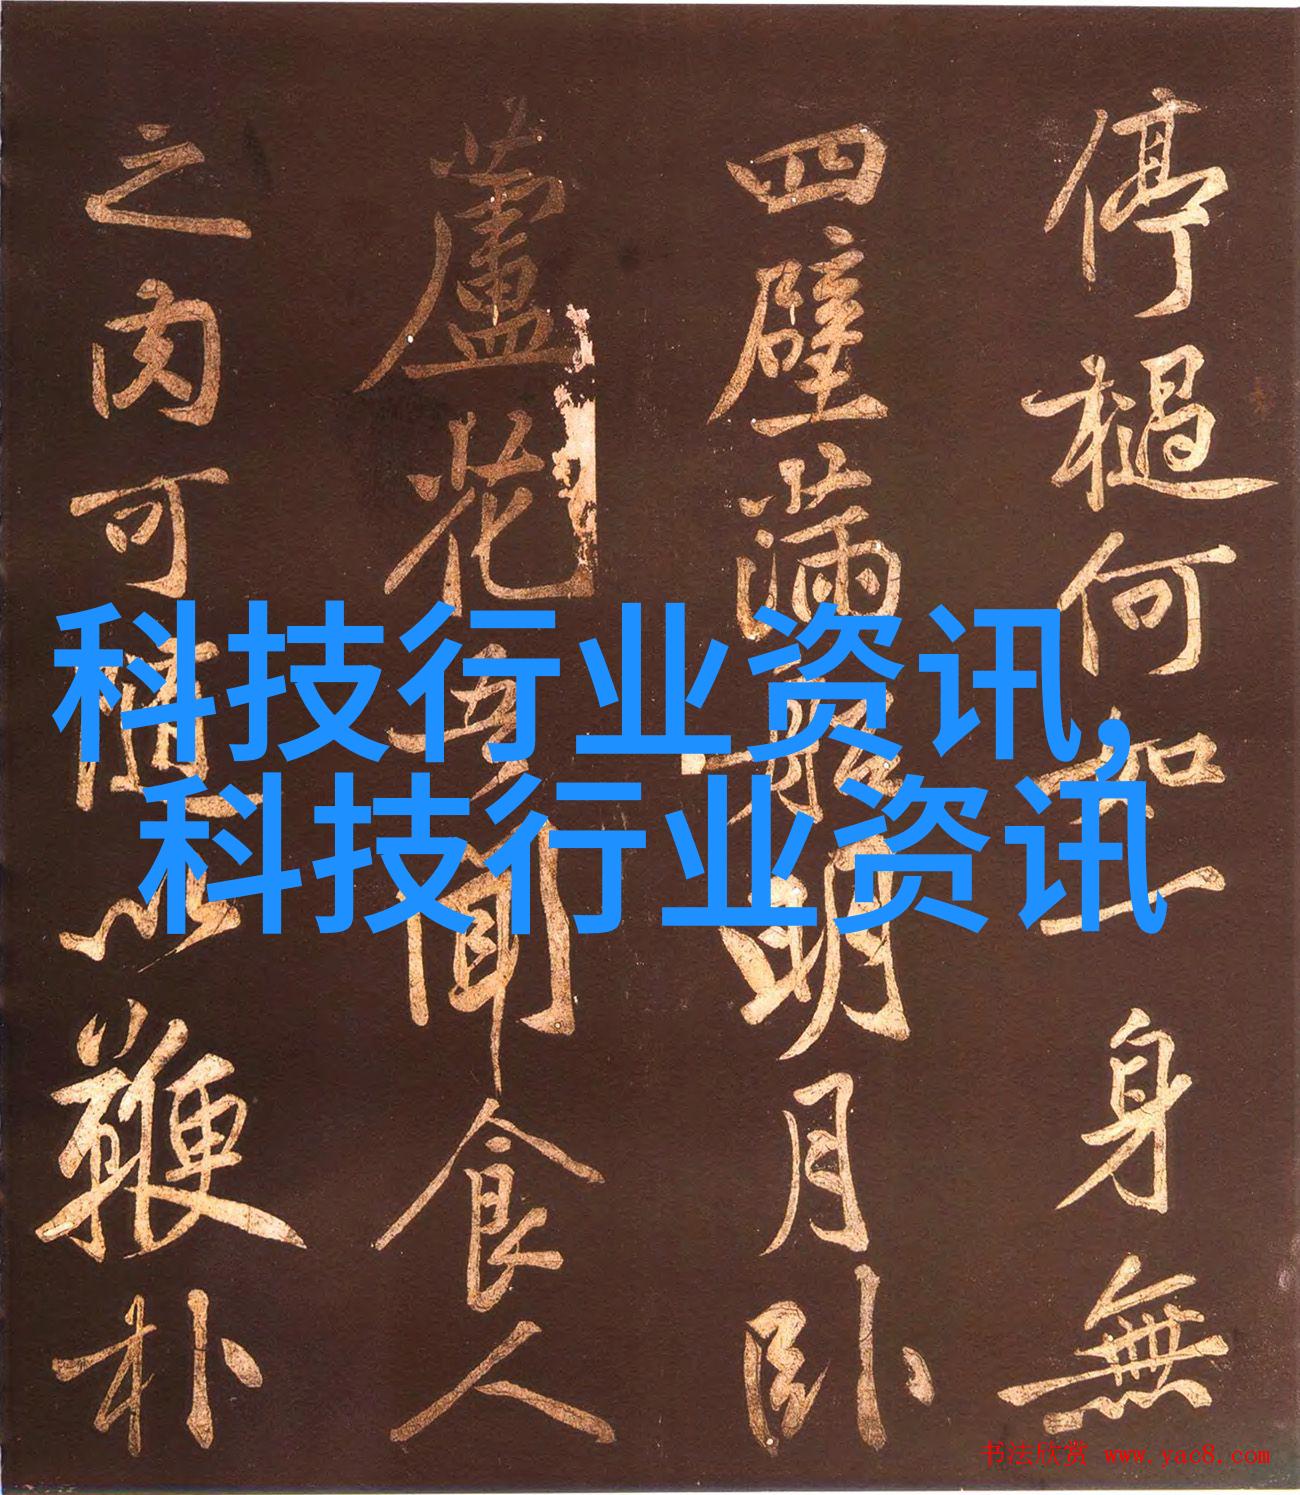 停檛何如一身無
四壁滿船明月卧
蘆花吾聞食人
之肉可隨以鞭朴
科技行业资讯,
科技行业资讯
书法欣赏 www.yac8.com